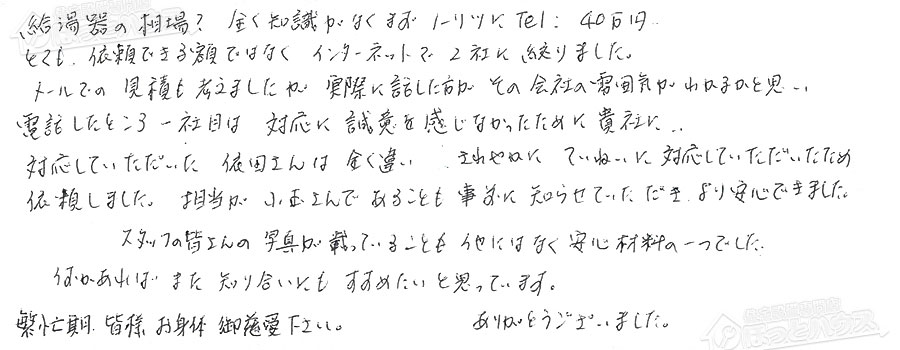 給湯器の相場? 全く知識がなくまず ノーリツに Tel: 40万円..
とても 依頼できる額ではなく インターネットで 2社に 絞りました。
メールでの 見積も 考えましたが 実際に話した方が その会社の雰囲気が わかるかと思い
電話したところ 一社目は 対応に 誠意を感じなかったために 貴社に..
対応していただいた 依田さんは 全く違い さわやかに ていねいに 対応していただいたため
依頼しました。 担当が 小玉さんで あることも 事前に 知らせていただき より安心できました。
スタッフの皆さんの 写真が 載っていることも 他にはなく 安心材料の一つでした
何かあれば また 知り合いにも すすめたいと 思っています。
繁忙期 皆様 お身体 御慈愛下さい。 ありがとうございました。